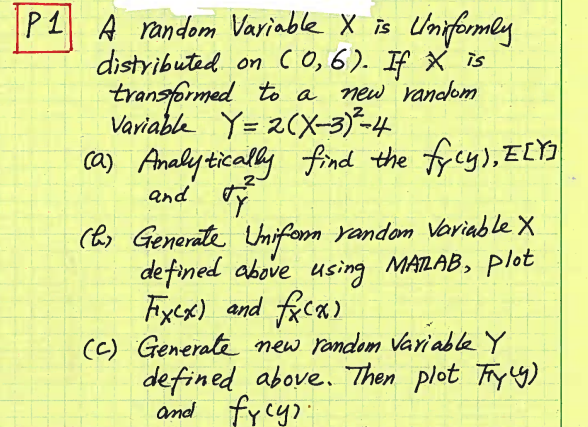 P1 A random Variable X is Uniformly
distributed on (0,6). If X is
transformed to a new random
Variable Y = 2(X-3)²-4
(a) Analytically find the f_Y(y), E[Y]
and σ_Y²
(b) Generate Uniform random Variable X
defined above using MATLAB, plot
F_X(x) and f_X(x)
(c) Generate new random Variable Y
defined above. Then plot F_Y(y)
and f_Y(y).